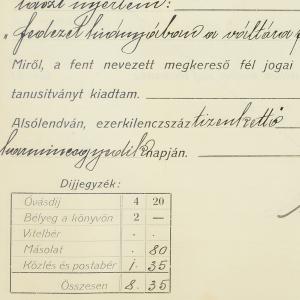 választ nyertem:
"fedezet hiányjában a váltóra
Miről, a fent nevezett megkereső fél jogai
tanusítványt kiadtam.
Alsólendván, ezerkilenczszáz tizenkettő
harminczegyedik napján.
Díjjegyzék:
Óvásdíj 4 20
Bélyeg a könyvön 2 —
Vitelbér . .
Másolat . 80
Közlés és postabér 1. 35
Összesen 8. 35